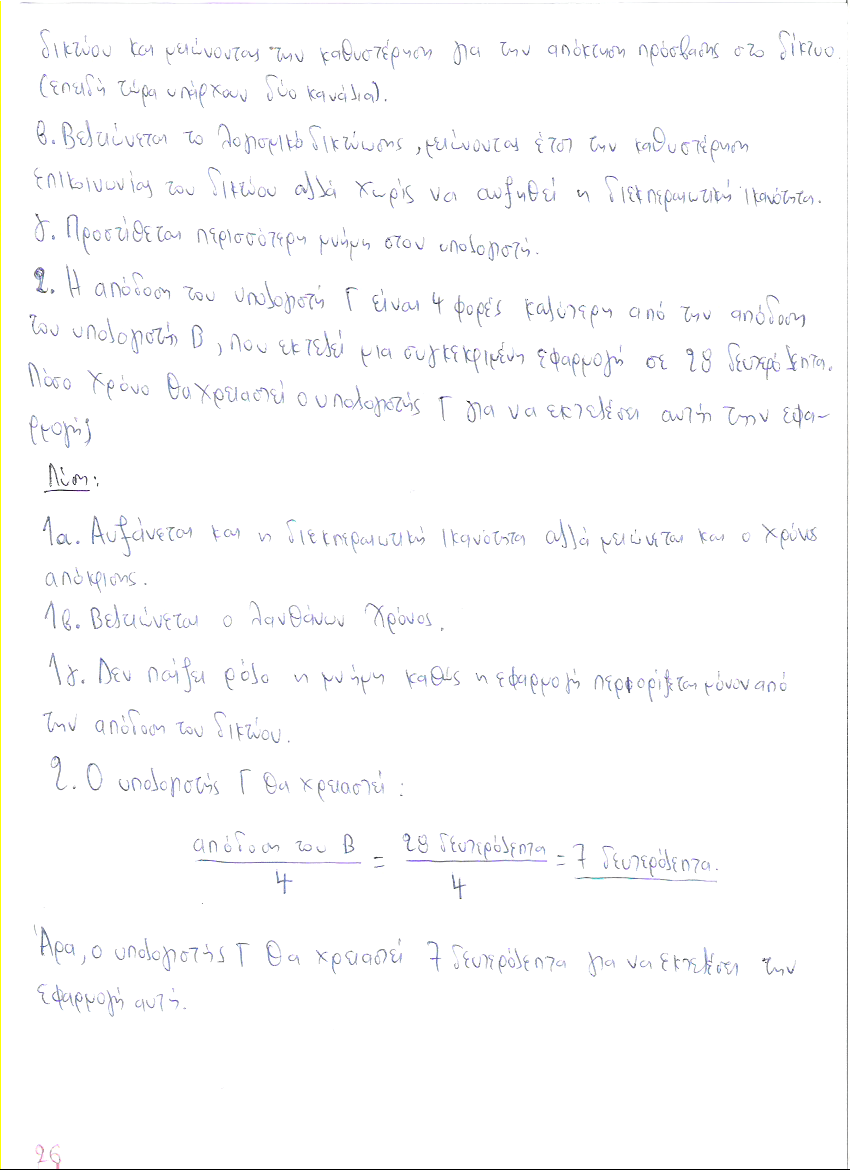 δικτύου και μειώνοντας την καθυστέρηση για την απόκτηση πρόσβασης στο δίκτυο.
(επειδή τώρα υπάρχουν δύο κανάλια).
β. Βελτιώνεται το λογισμικό δικτύωσης, μειώνοντας έτσι την καθυστέρηση
επικοινωνίας του δικτύου αλλά χωρίς να αυξηθεί η διεκπεραιωτική ικανότητα.
γ. Προστίθεται περισσότερη μνήμη στον υπολογιστή.
2. Η απόδοση του υπολογιστή Γ είναι 4 φορές καλύτερη από την απόδοση
του υπολογιστή Β, που εκτελεί μια συγκεκριμένη εφαρμογή σε 28 δευτερόλεπτα.
Πόσο χρόνο θα χρειαστεί ο υπολογιστής Γ για να εκτελέσει αυτή την εφα-
ρμογή;
Λύση:
1α. Αυξάνεται και η διεκπεραιωτική ικανότητα αλλά μειώνεται και ο χρόνος
απόκρισης.
1β. Βελτιώνεται ο λανθάνων χρόνος.
1γ. Δεν παίζει ρόλο η μνήμη καθώς η εφαρμογή περιορίζεται μόνον από
την απόδοση του δικτύου.
2. Ο υπολογιστής Γ θα χρειαστεί:
απόδοση του Β / 4 = 28 δευτερόλεπτα / 4 = 7 δευτερόλεπτα.
Άρα, ο υπολογιστής Γ θα χρειαστεί 7 δευτερόλεπτα για να εκτελέσει την
εφαρμογή αυτή.
26